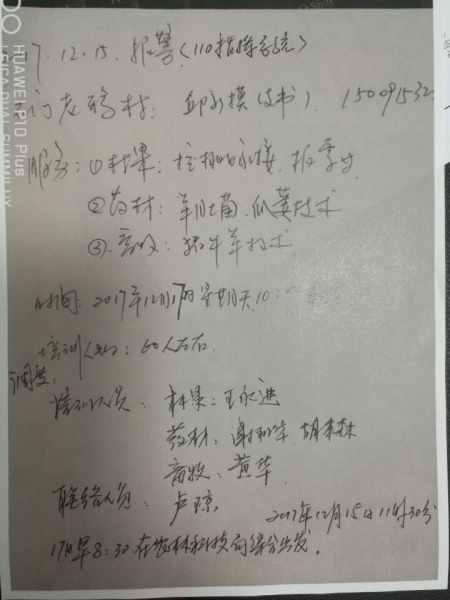 7.12.15. 报警（110指挥系统）
石门老鸦村： （支书） 15009153
服务：①林果：核桃嫁接、
②药材：羊肚菌、瓜蒌技术
③畜牧：猪牛羊技术
时间：2017年12月17日星期天10:
培训人数：60人左右
调度
培训人员：林果：王永进
药材：谢 华 胡本森
畜牧：黄华
联络人员：卢琼
2017年12月15日11时30分
17日早8:30在农林科技局综合出发。
HUAWEI P10 Plus
LEICA DUAL SUMMILUX